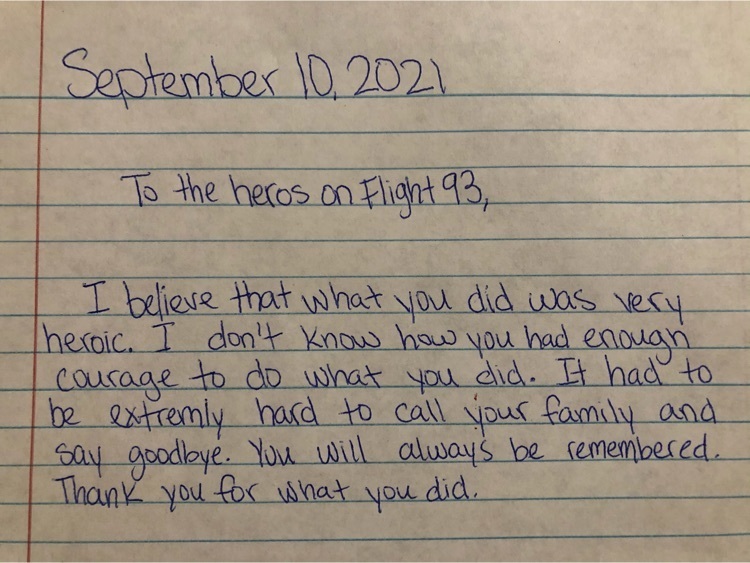 September 10, 2021
To the heros on Flight 93,
I believe that what you did was very
heroic. I don't know how you had enough
courage to do what you did. It had to
be extremly hard to call your family and
say goodbye. You will always be remembered.
Thank you for what you did.